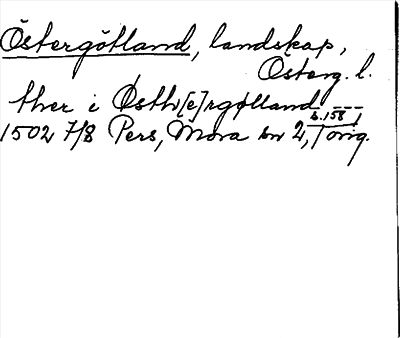 Östergötland, landskap,
Österg. l.
ther i Østh[e]rgøtland ---
s. 158
1502 7/8 Pers, Mora nr 2, orig.